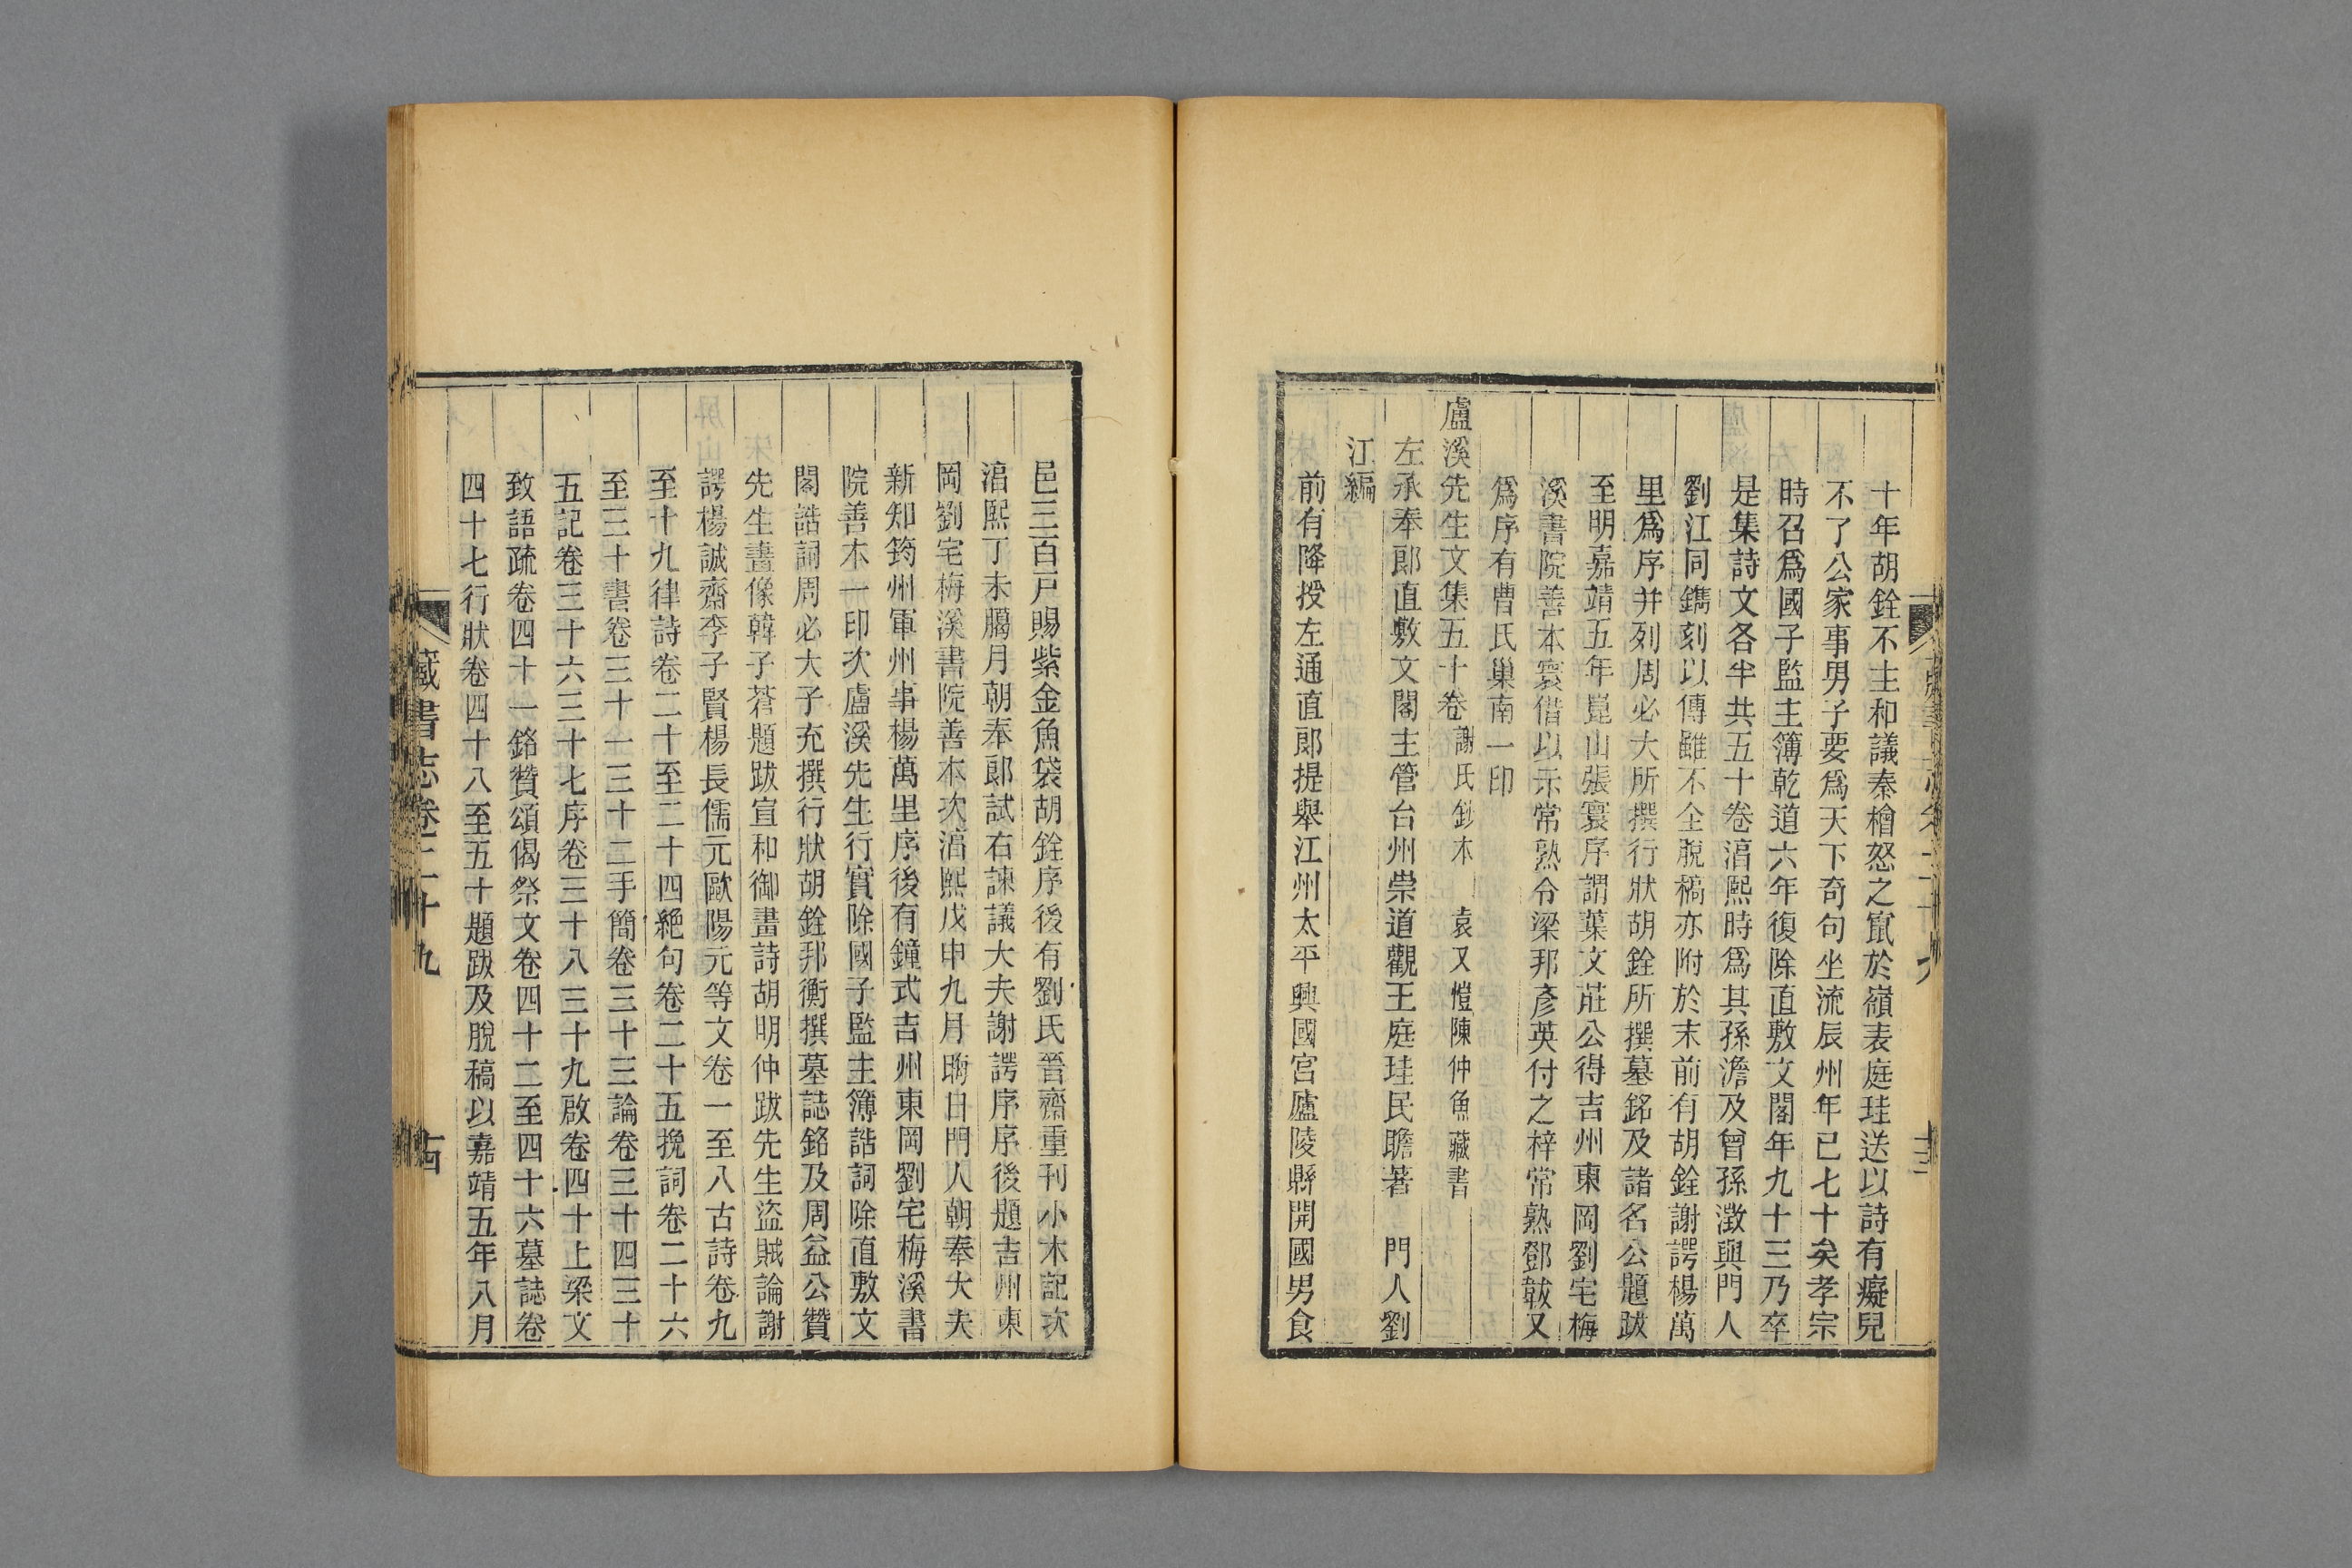 十年胡銓不主和議秦檜怒之竄於嶺表庭珪送以詩有癡兒
不了公家事男子要爲天下奇句坐流辰州年已七十矣孝宗
時召爲國子監主簿乾道六年復除直敷文閣年九十三乃卒
是集詩文各半共五十卷湻熙時爲其孫澹及曾孫澂與門人
劉江同鐫刻以傳雖不全脫稿亦附於末前有胡銓謝諤楊萬
里爲序并列周必大所撰行狀胡銓所撰墓銘及諸名公題跋
至明嘉靖五年崑山張寰序謂葉文莊公得吉州東岡劉宅梅
溪書院善本寰借以示常熟令梁邦彥英付之梓常熟鄧韍又
爲序有曹氏巢南一印
盧溪先生文集五十卷 謝氏鈔本 袁又愷陳仲魚藏書
左承奉郎直敷文閣主管台州崇道觀王庭珪民瞻著 門人劉
江編
前有降授左通直郎提舉江州太平興國宮廬陵縣開國男食
邑三百戶賜紫金魚袋胡銓序後有劉氏晉齋重刊小木記次
湻熙丁未臈月朝奉郎試右諫議大夫謝諤序序後題吉州東
岡劉宅梅溪書院善本次湻熙戊申九月晦日門人朝奉大夫
新知筠州軍州事楊萬里序後有鐘式吉州東岡劉宅梅溪書
院善本一印次盧溪先生行實除國子監主簿誥詞除直敷文
閣誥詞周必大子充撰行狀胡銓邦衡撰墓誌銘及周益公贊
先生畫像韓子蒼題跋宣和御畫詩胡明仲跋先生盜賊論謝
諤楊誠齋李子賢楊長儒元歐陽元等文卷一至八古詩卷九
至十九律詩卷二十至二十四絕句卷二十五挽詞卷二十六
至三十書卷三十一三十二手簡卷三十三論卷三十四三十
五記卷三十六三十七序卷三十八三十九啟卷四十上梁文
致語疏卷四十一銘贊頌偈祭文卷四十二至四十六墓誌卷
四十七行狀卷四十八至五十題跋及脫稿以嘉靖五年八月
藏書志卷二十九 十四